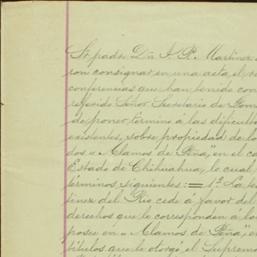 padre D. I. R. Martinez
ron consignar en una acta, el
conferencias que han tenido con
referido Señor Secretario de Fom
de poner término á las dificulta
existentes, sobre propiedad de lo
dos "Alamos de Peña," en el ca
Estado de Chihuahua, lo cual
términos siguientes: = 1ª La
tinez del Rio cede á favor del
derechos que le corresponden á lo
posee en "Alamos de Peña," en
títulos que le otorgó el Suprem